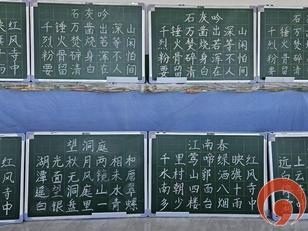 红
风
寺
中
石灰吟
千锤万凿出深山
烈火焚烧若等闲
粉骨碎身浑不怕
要留清白在人间
石灰吟
千锤万凿出深山
烈火焚烧若等闲
粉骨碎身浑不怕
要留清白在人间
千锤
烈火
粉骨
要留
红
风
寺
中
望洞庭
湖光秋月两相和
潭面无风镜未磨
遥望洞庭山水翠
白银盘里一青螺
江南春
千里莺啼绿映红
水村山郭酒旗风
南朝四百八十寺
多少楼台烟雨中
远上
白云